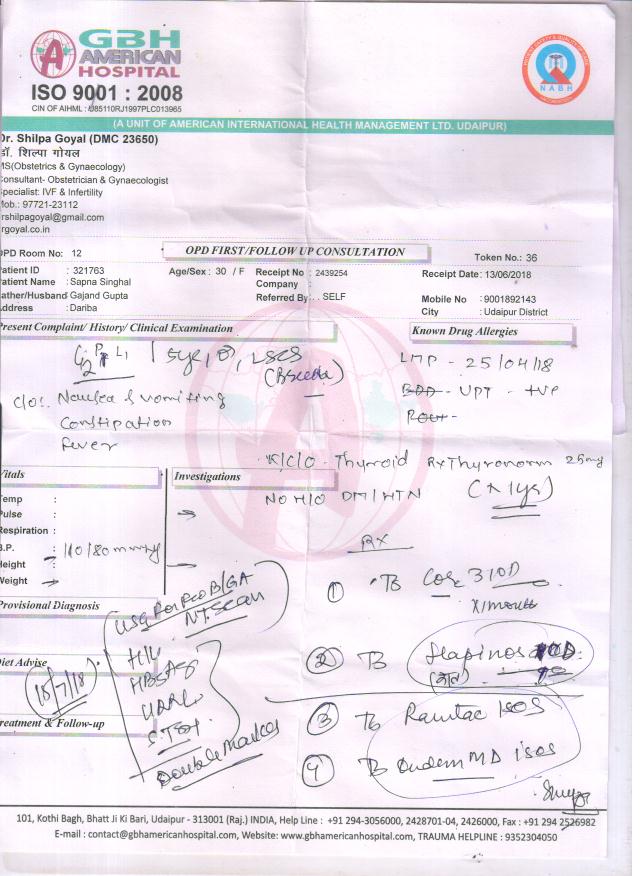 GBH
AMERICAN
HOSPITAL
ISO 9001 : 2008
CIN OF AIHML : U85110RJ1997PLC013965
NABH
(A UNIT OF AMERICAN INTERNATIONAL HEALTH MANAGEMENT LTD. UDAIPUR)
Dr. Shilpa Goyal (DMC 23650)
डॉ. शिल्पा गोयल
MS(Obstetrics & Gynaecology)
Consultant- Obstetrician & Gynaecologist
Specialist: IVF & Infertility
Mob.: 97721-23112
rshilpagoyal@gmail.com
rgoyal.co.in
OPD Room No: 12
OPD FIRST/FOLLOW UP CONSULTATION
Token No.: 36
Patient ID : 321763 Age/Sex : 30 / F Receipt No : 2439254 Receipt Date: 13/06/2018
Patient Name : Sapna Singhal Company :
Father/Husband Gajand Gupta Referred By : . . SELF Mobile No : 9001892143
Address : Dariba City : Udaipur District
Present Complaint/ History/ Clinical Examination
Known Drug Allergies
G2P1L1 | 5yr, LSCS
LMP - 25/04/18
UPT - +ve
c/o. Nausea & vomiting
Constipation
fever
K/C/O. Thyroid Rx Thyronorm 25mg
(x 1yr)
NO H/O DM/HTN
Vitals
Investigations
Temp :
Pulse :
Respiration :
B.P. : 110/80 mmHg
Height :
Weight
RX
① Tb 310D
x1month
Provisional Diagnosis
USG
NT. Scan
② Tb
Diet Advise
HIV
HBsAg
(18/7/18)
③ Tb Rantac ISOS
Treatment & Follow-up
Double Marker
④ Tb Ondem MD ISOS
101, Kothi Bagh, Bhatt Ji Ki Bari, Udaipur - 313001 (Raj.) INDIA, Help Line : +91 294-3056000, 2428701-04, 2426000, Fax : +91 294 2526982
E-mail : contact@gbhamericanhospital.com, Website: www.gbhamericanhospital.com, TRAUMA HELPLINE : 9352304050